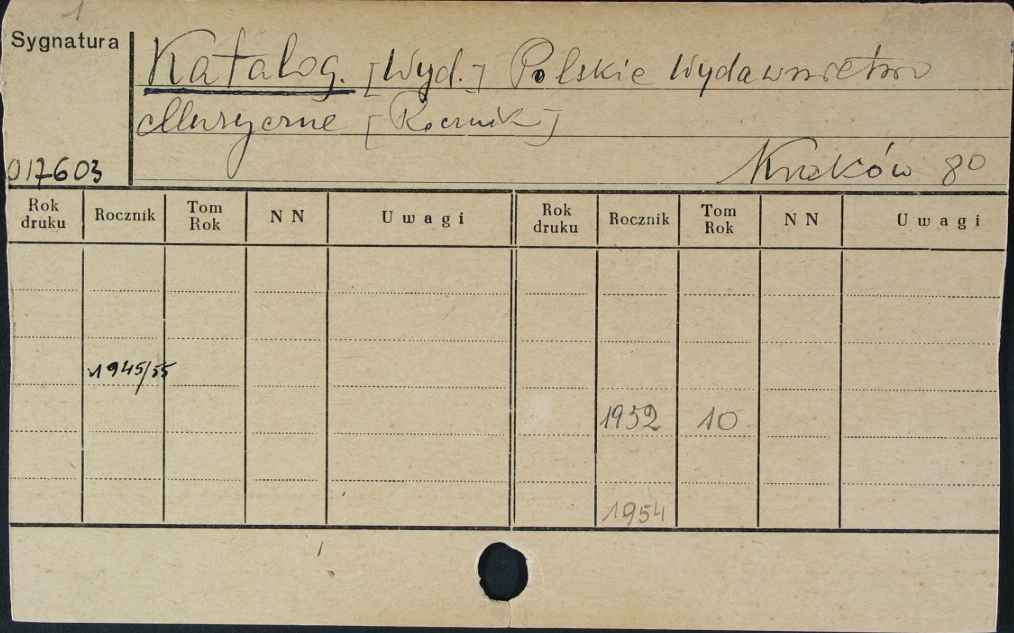 1
Sygnatura
Katalog. [Wyd.] Polskie Wydawnictwo
Muzyczne [Rocznik]
Kraków 8º
017603
Rok druku Rocznik Tom Rok N N Uwagi Rok druku Rocznik Tom Rok N N Uwagi
1945/55
1952 10
1954